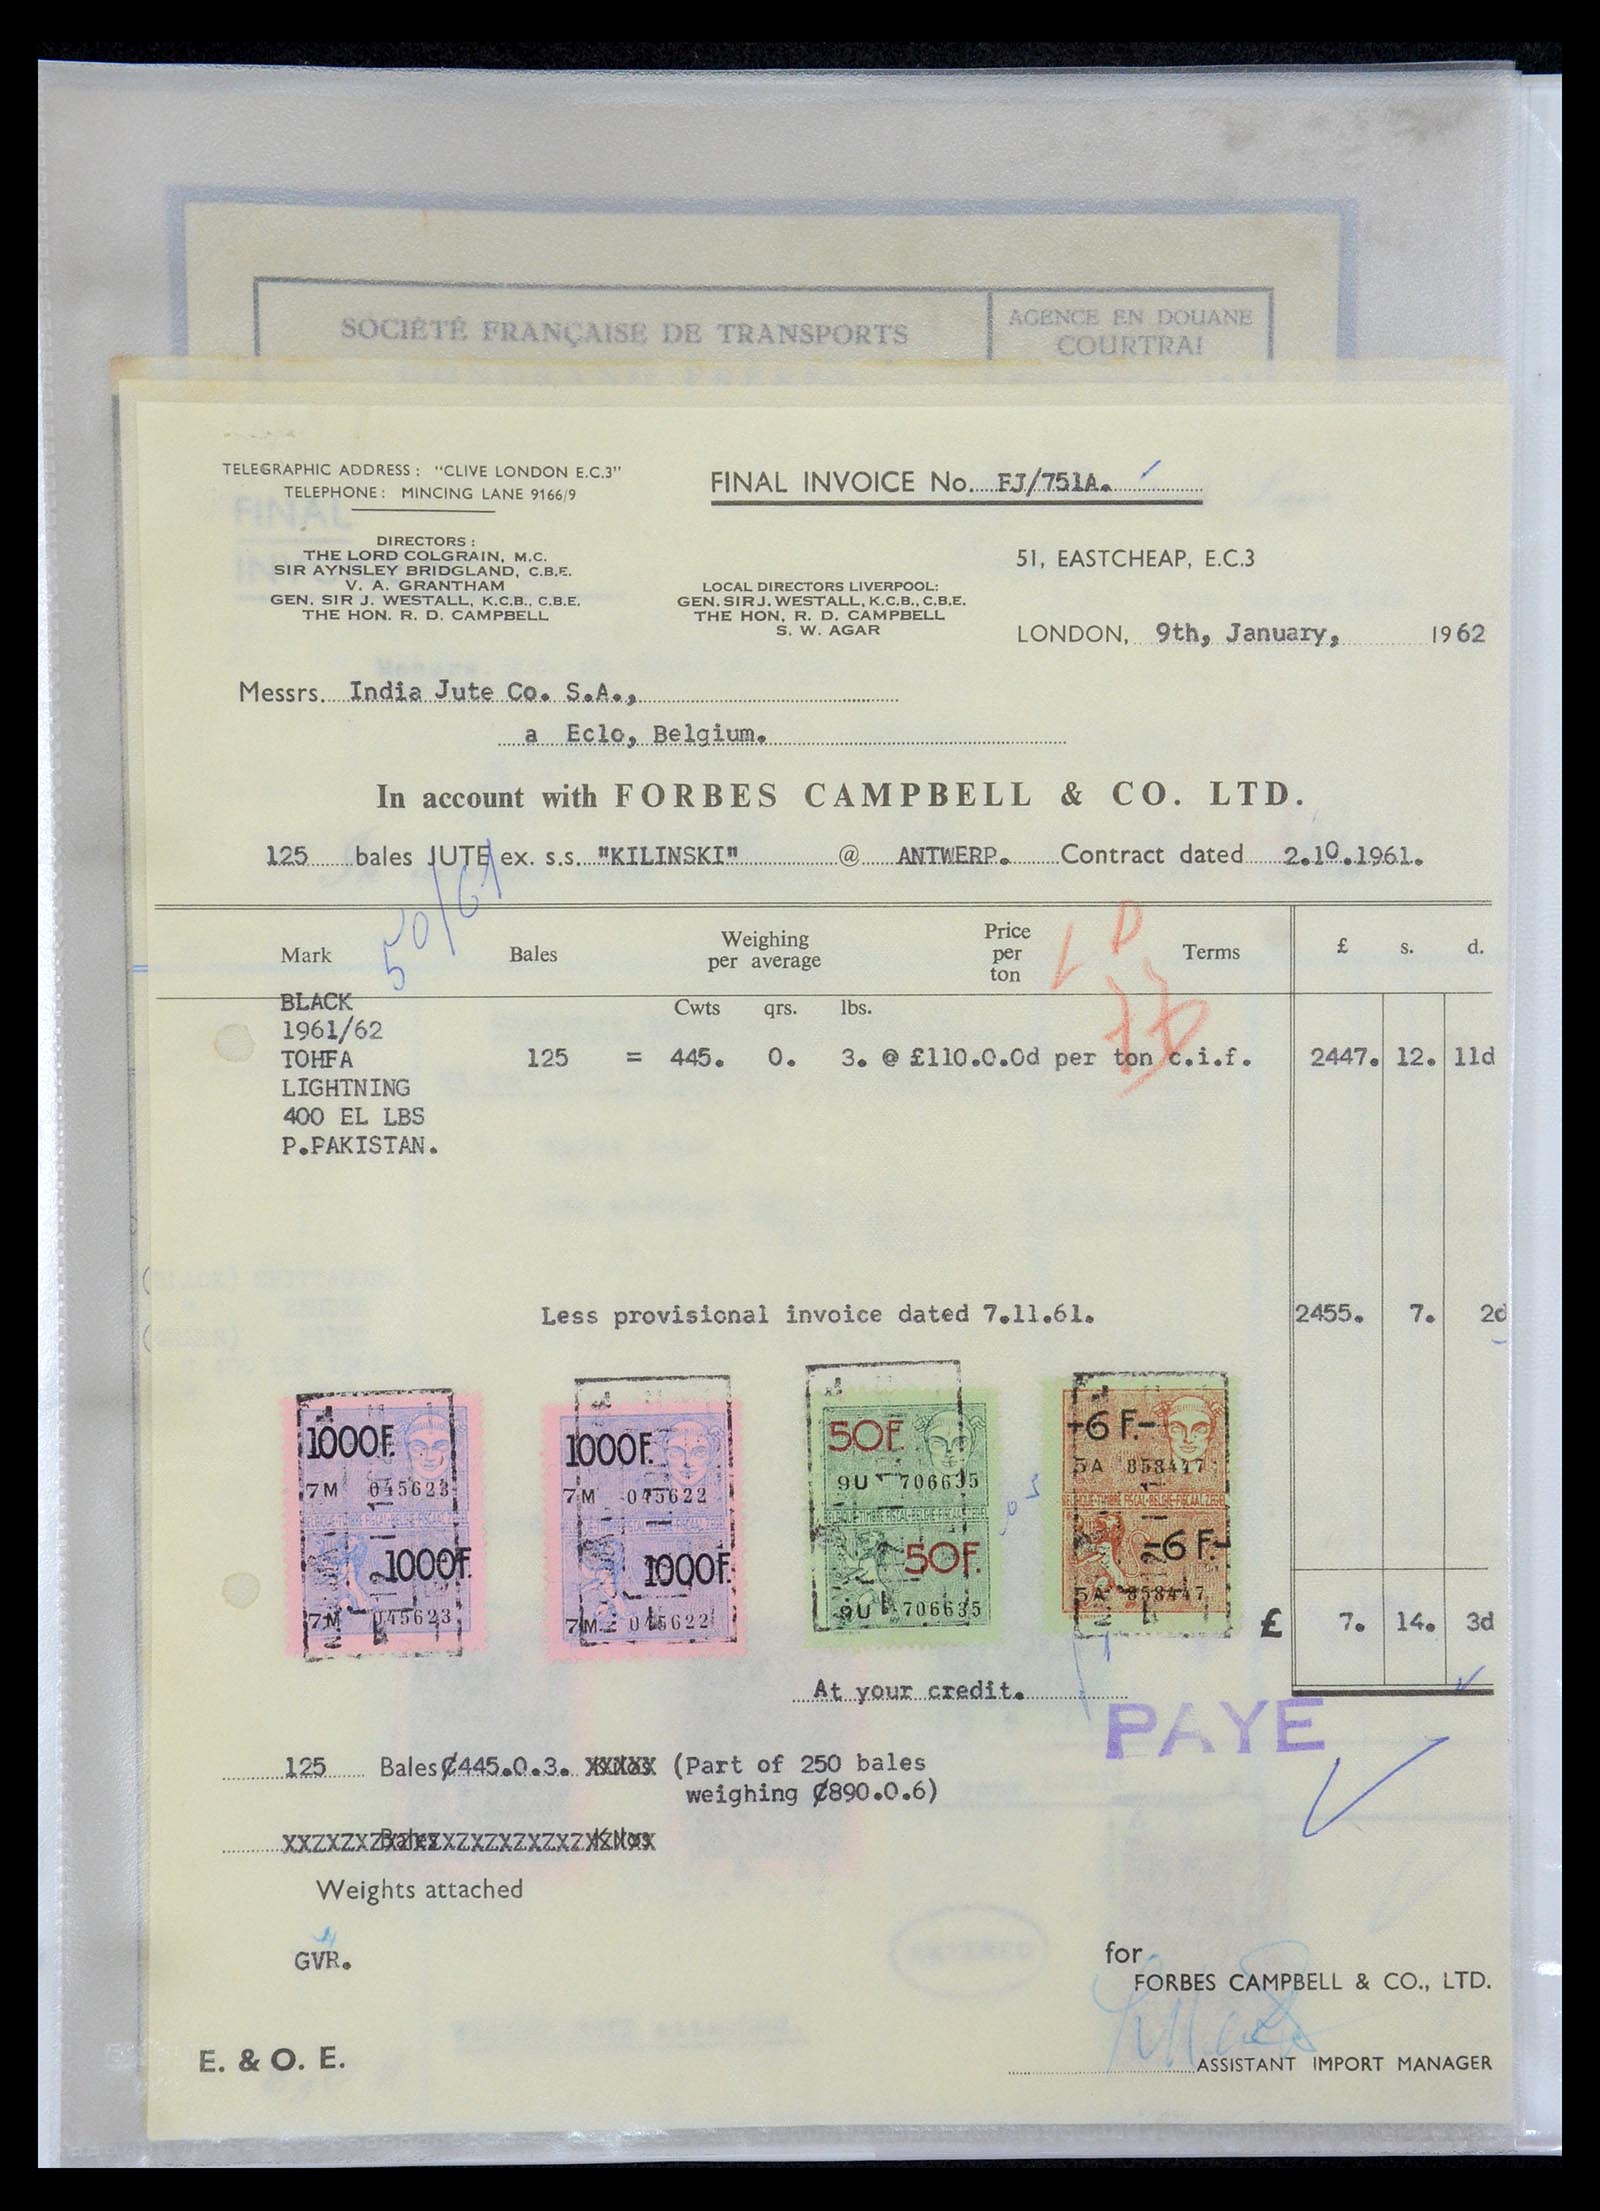 SOCIÉTÉ FRANÇAISE DE TRANSPORTS
AGENCE EN DOUANE
COURTRAI
TELEGRAPHIC ADDRESS: "CLIVE LONDON E.C.3"
TELEPHONE: MINCING LANE 9166/9
FINAL INVOICE No. FJ/751A.
DIRECTORS:
THE LORD COLGRAIN, M.C.
SIR AYNSLEY BRIDGLAND, C.B.E.
V. A. GRANTHAM
GEN. SIR J. WESTALL, K.C.B., C.B.E.
THE HON. R. D. CAMPBELL
LOCAL DIRECTORS LIVERPOOL:
GEN. SIR J. WESTALL, K.C.B., C.B.E.
THE HON. R. D. CAMPBELL
S. W. AGAR
51, EASTCHEAP, E.C.3
LONDON, 9th, January, 1962
Messrs. India Jute Co. S.A.,
a Eclo, Belgium.
In account with FORBES CAMPBELL & CO. LTD.
125 bales JUTE ex. s.s. "KILINSKI" @ ANTWERP. Contract dated 2.10.1961.
50/61
Mark Bales Weighing per average Price per ton Terms £ s. d.
Cwts qrs. lbs.
BLACK
1961/62
TOHFA 125 = 445. 0. 3. @ £110.0.0d per ton c.i.f. 2447. 12. 11d
LIGHTNING
400 EL LBS
P.PAKISTAN.
Less provisional invoice dated 7.11.61. 2455. 7. 2d
1000F.
7M 045623
BELGIQUE-TIMBRE FISCAL-BELGIE-FISCAAL ZEGEL
1000F.
7M 045623
1000F.
7M 045622
BELGIQUE-TIMBRE FISCAL-BELGIE-FISCAAL ZEGEL
1000F.
7M 045622
50F.
9U 706635
BELGIQUE-TIMBRE FISCAL-BELGIE-FISCAAL ZEGEL
50F.
9U 706635
-6 F.-
5A 858447
BELGIQUE-TIMBRE FISCAL-BELGIE-FISCAAL ZEGEL
-6 F.-
5A 858447
£ 7. 14. 3d
At your credit.
PAYE
125 Bales ₡445.0.3. (Part of 250 bales
weighing ₡890.0.6)
Weights attached
GVR.
for
FORBES CAMPBELL & CO., LTD.
E. & O. E.
ASSISTANT IMPORT MANAGER